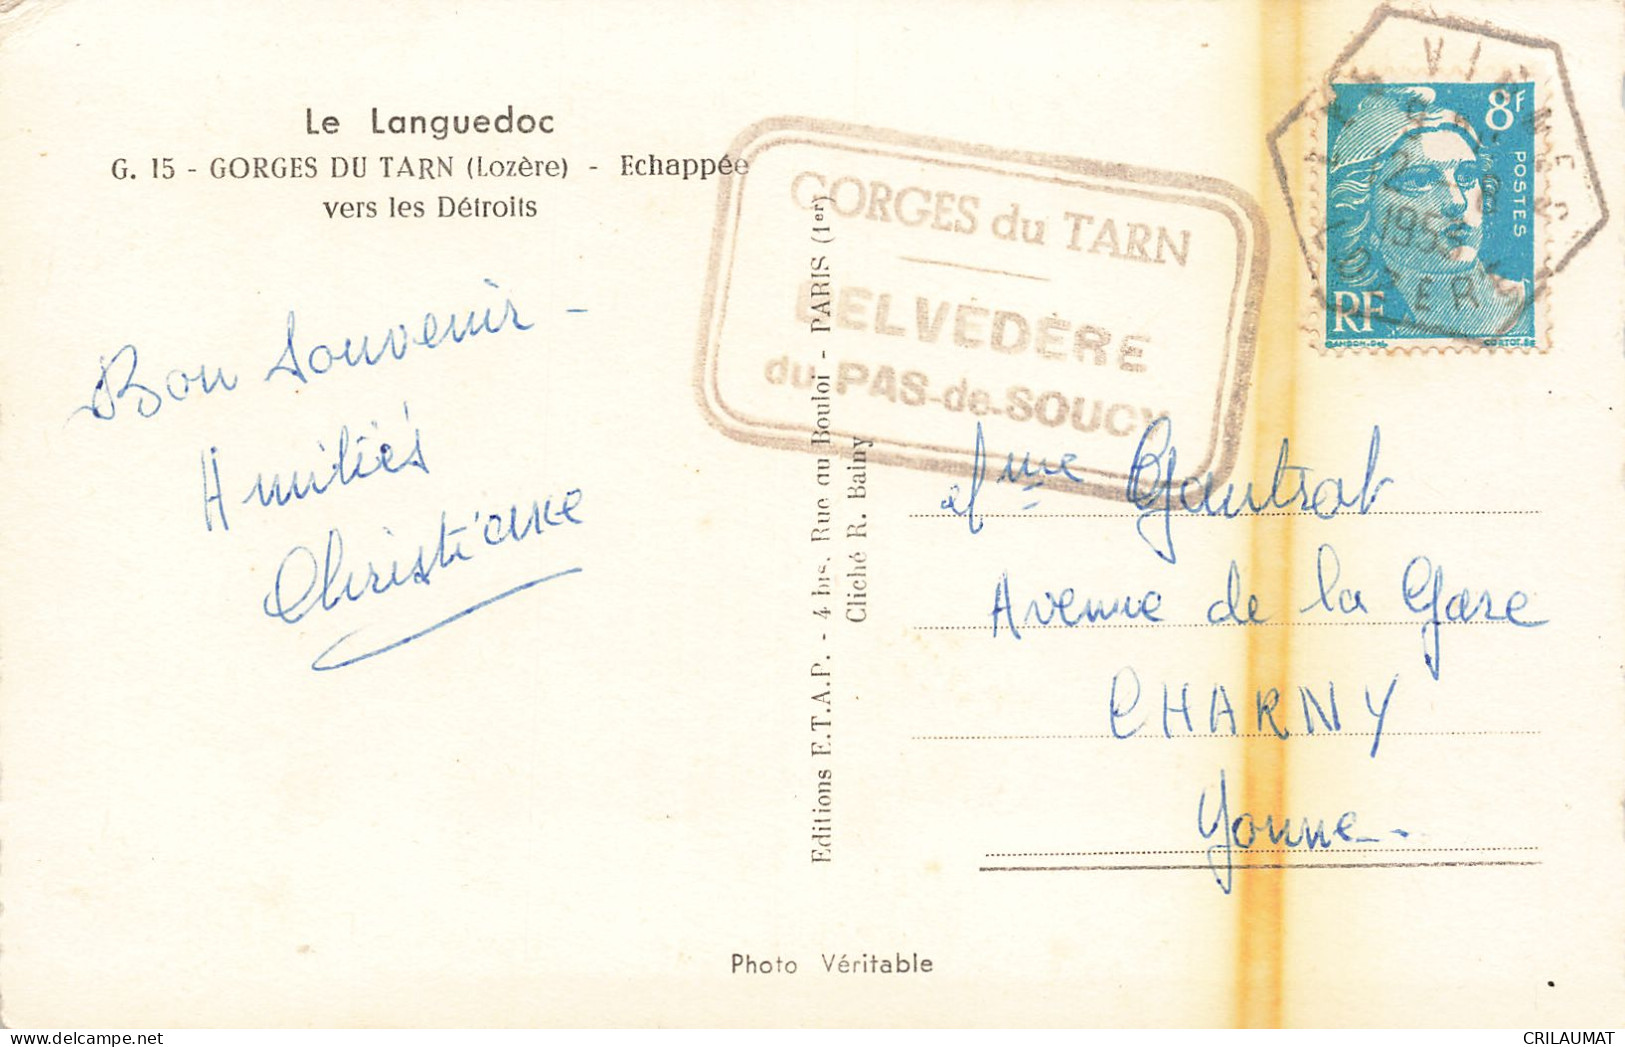 Le Languedoc
G. 15 - GORGES DU TARN (Lozère) - Echappée
vers les Détroits
Bon Souvenir -
Amitiés
Christiane
Editions E.T.A.P. - 4 bis, Rue du Bouloi - PARIS (1er)
Cliché R. Bainy
GORGES du TARN
BELVÉDÈRE
du PAS-de-SOUCY
8F
POSTES
RF
GANDON.Del
CORTOT.Sc
LES VIGNES
12
8
1953
LOZERE
Mme Gautrat
Avenue de la Gare
CHARNY
Yonne.
Photo Véritable
CRILAUMAT